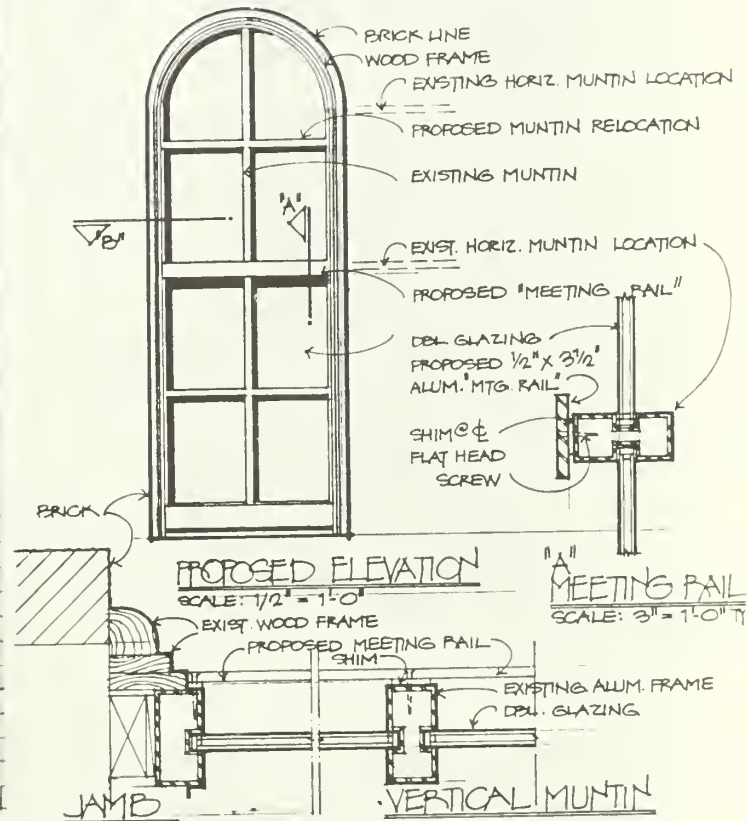 BRICK LINE
WOOD FRAME
EXISTING HORIZ. MUNTIN LOCATION
PROPOSED MUNTIN RELOCATION
EXISTING MUNTIN
"A"
"B"
EXIST. HORIZ. MUNTIN LOCATION
PROPOSED "MEETING RAIL"
DBL. GLAZING
PROPOSED 1/2" X 3 1/2"
ALUM. "MTG. RAIL"
SHIM @ ℄
FLAT HEAD
SCREW
BRICK
PROPOSED ELEVATION
SCALE: 1/2" = 1'-0"
"A"
MEETING RAIL
SCALE: 3" = 1'-0" TY
EXIST. WOOD FRAME
PROPOSED MEETING RAIL
SHIM
EXISTING ALUM. FRAME
DBL. GLAZING
JAMB
VERTICAL MUNTIN